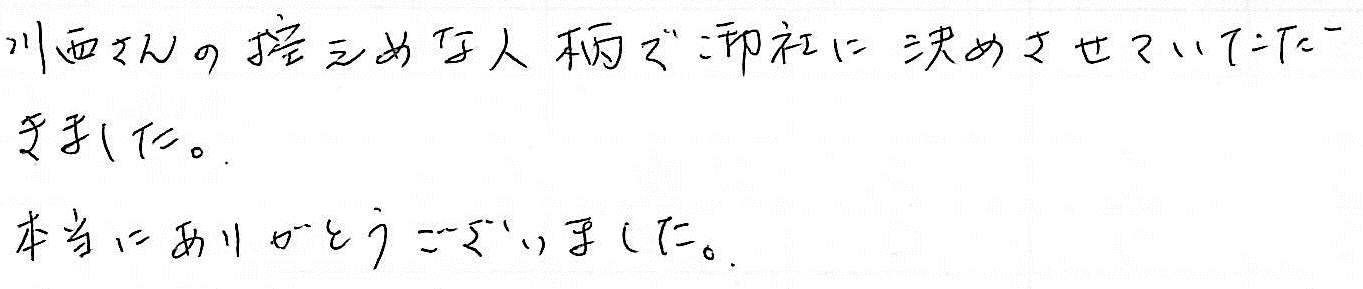 川西さんの控えめな人柄で御社に決めさせていただ
きました。
本当にありがとうございました。